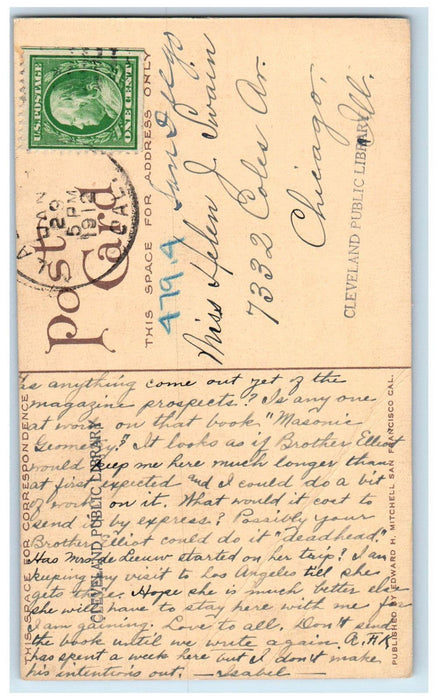 U.S. POSTAGE
ONE CENT
JAN
29
5 PM
1912
CAL.
Post
Card
THIS SPACE FOR ADDRESS ONLY
479.4 San Diego
Miss Helen J. Swain
7332 Coles Av.
Chicago,
Ill.
CLEVELAND PUBLIC LIBRARY
THIS SPACE FOR CORRESPONDENCE
Has anything come out yet of the
magazine prospects? Is any one
at work on that book "Masonic
Geometry"? It looks as if Brother Elliot
would keep me here much longer than
at first expected and I could do a bit
of work on it. What would it cost to
send it by express? Possibly your
Brother Elliot could do it "deadhead."
Has Mrs. de Leeuw started on her trip? I am
keeping my visit to Los Angeles till she
gets there. Hope she is much better else
she will have to stay here with me for
I am gaining. Love to all. Don't send
the book until we write again. R.A.K
has spent a week here but I don't make
his intentions out. — Isabel —
CLEVELAND PUBLIC LIBRARY
PUBLISHED BY EDWARD H. MITCHELL SAN FRANCISCO CAL.